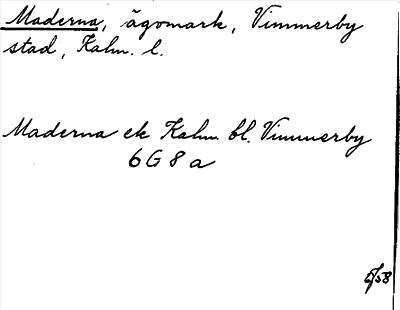 Maderna, ägomark, Vimmerby
stad, Kalm. l.
Maderna ek Kalm. bl. Vimmerby
6G8a
5/58